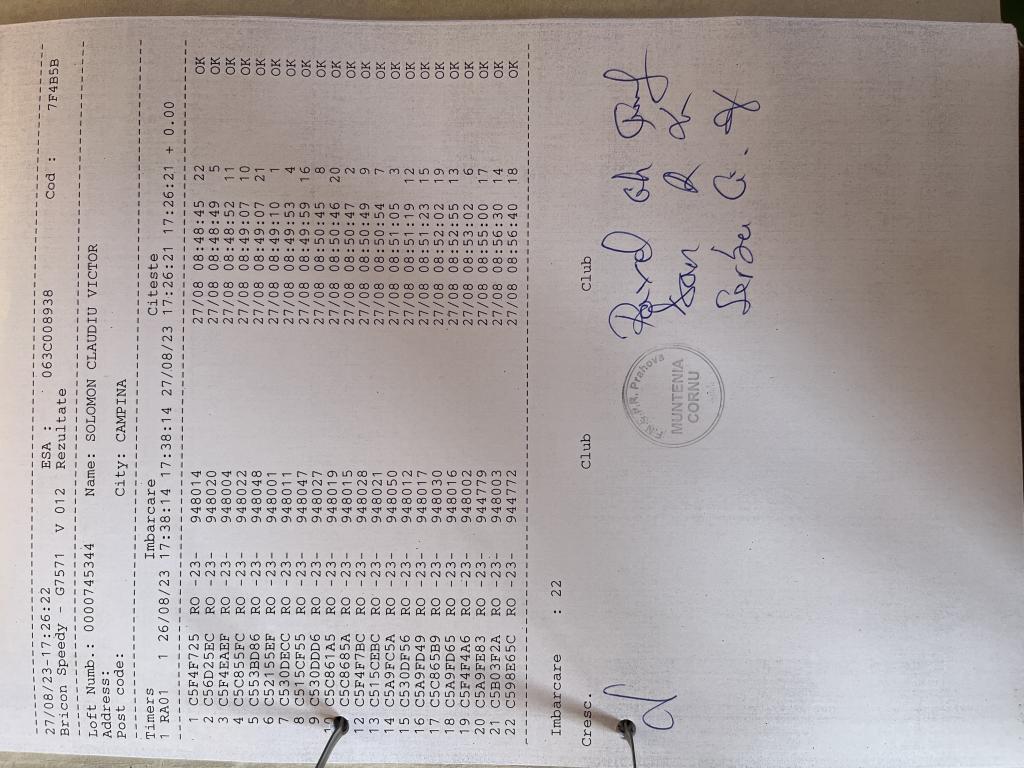 27/08/23-17:26:22 ESA : 063C008938 Cod : 7F4B5B
Bricon Speedy - G7571 V 012 Rezultate
Loft Numb.: 0000745344 Name: SOLOMON CLAUDIU VICTOR
Address:
Post code: City: CAMPINA
Timers Imbarcare Citeste
1 RA01 1 26/08/23 17:38:14 17:38:14 27/08/23 17:26:21 17:26:21 + 0.00
1 C5F4F725 RO -23- 948014 27/08 08:48:45 22 OK
2 C56D25EC RO -23- 948020 27/08 08:48:49 5 OK
3 C5F4EAEF RO -23- 948004 27/08 08:48:52 11 OK
4 C5C855FC RO -23- 948022 27/08 08:49:07 10 OK
5 C553BD86 RO -23- 948048 27/08 08:49:07 21 OK
6 C52155EF RO -23- 948001 27/08 08:49:10 1 OK
7 C530DECC RO -23- 948011 27/08 08:49:53 4 OK
8 C515CF55 RO -23- 948047 27/08 08:49:59 16 OK
9 C530DDD6 RO -23- 948027 27/08 08:50:45 8 OK
C5C861A5 RO -23- 948019 27/08 08:50:46 20 OK
C5C8685A RO -23- 948015 27/08 08:50:47 2 OK
12 C5F4F7BC RO -23- 948028 27/08 08:50:49 9 OK
13 C515CEBC RO -23- 948021 27/08 08:50:54 7 OK
14 C5A9FC5A RO -23- 948050 27/08 08:51:05 3 OK
15 C530DF56 RO -23- 948012 27/08 08:51:19 12 OK
16 C5A9FD49 RO -23- 948017 27/08 08:51:23 15 OK
17 C5C865B9 RO -23- 948030 27/08 08:52:02 19 OK
18 C5A9FD65 RO -23- 948016 27/08 08:52:55 13 OK
19 C5F4F4A6 RO -23- 948002 27/08 08:53:02 6 OK
20 C5A9FE83 RO -23- 944779 27/08 08:55:00 17 OK
21 C5B03F2A RO -23- 948003 27/08 08:56:30 14 OK
22 C598E65C RO -23- 944772 27/08 08:56:40 18 OK
Imbarcare : 22
Cresc. Club Club
Prahova
MUNTENIA
CORNU